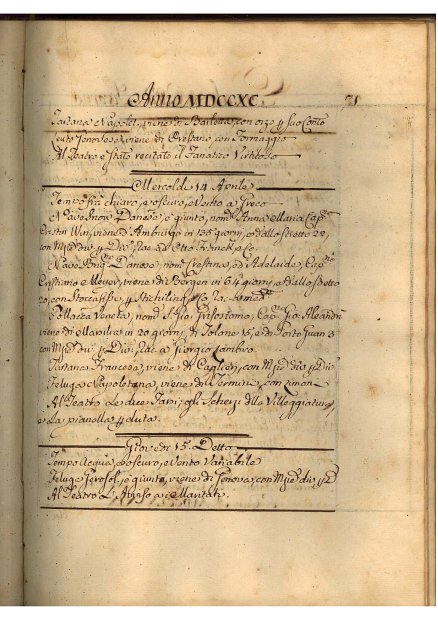 Anno MDCCXC. 71
Tartana Napolet. viene di Barletta, con orzo p suo Conto
Leuto Genovese, viene di Oristano, con Formaggio
Al Teatro è stato recitato il Fanatico Virtuoso
Mercoldi 14 Aprile
Tempo frà chiaro, e oscuro, e Vento a Greco
Nave Danese è giunto, nom.ta Anna Maria Cap.o
Cristin viene d'Amburgo in 135 giorni, e dallo stretto 22,
con M.zie div. p Div. Rac. ad Otto Franck e C.
Nave Brig. Danese, nom.ta Cristina, ed Adelaide, Cap.o
Cristiano Meyer, viene di Bergen in 64 giorni, e dallo stretto
20, con Stoccafisso, e Rac. a med.
Pollacca Veneta, nom.ta S. Gio: Grisostomo, Cap.o Gio:
viene di Marsilia in 20 giorni, di Tolone 15, e di Porto 3
con M.zie div. p Div. Rac. a Giorgio
Tartana Francese, viene di Caglieri, con M.zie div. p Div.
Feluga Napoletana, viene di Termini, con Limoni
Al Teatro Le due gli Scherzi della Villeggiatura,
e La pianella perduta.
Giovedi 15. Detto
Tempo Acqua, e oscuro, e Vento Variabile
Feluga è giunta, viene di Genova, con M.zie div. p D.
Al Teatro L'Avviso a Maritati.